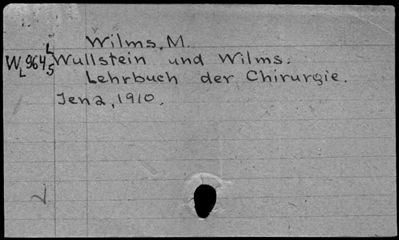 Wilms, M.
Wullstein und Wilms.
Lehrbuch der Chirurgie.
Jena, 1910.